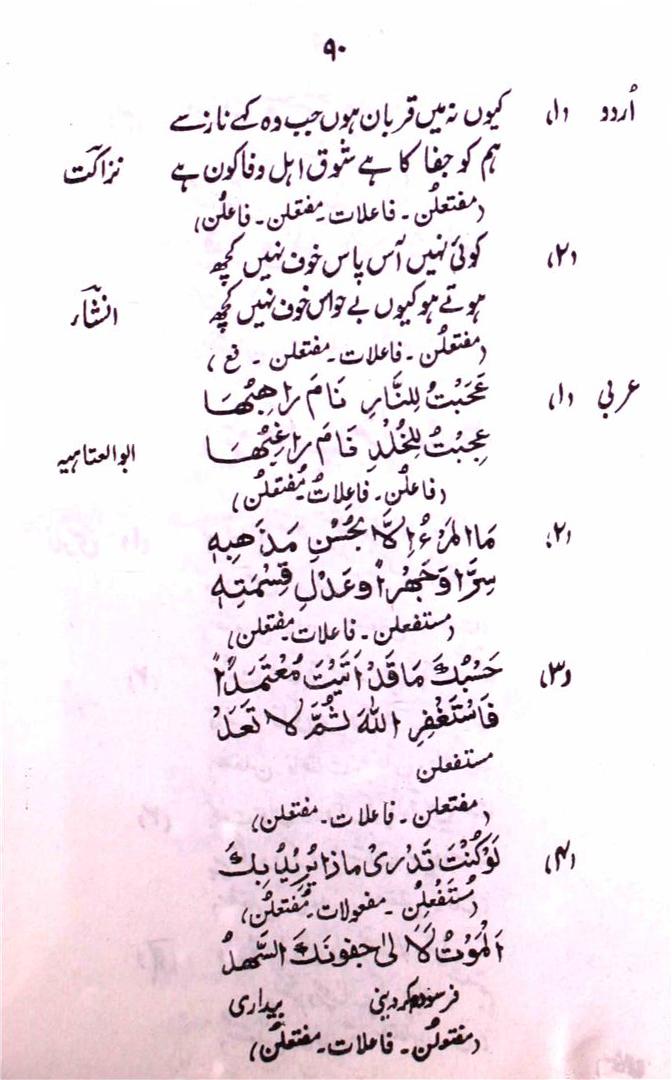 ۹۰
اُردو (۱) کیوں نہ میں قربان ہوں جب وہ کہے ناز سے
ہم کو جفا کا ہے شوق اہل وفا کون ہے نزاکت
(مفتعلن۔ فاعلات۔ مفتعلن۔ فاعلن)
(۲) کوئی نہیں آس پاس خوف نہیں کچھ
ہوتے ہو کیوں بے حواس خوف نہیں کچھ انشاء
(مفتعلن۔ فاعلات۔ مفتعلن۔ فع)
عربی (۱) عَجِبْتُ لِلنَّارِ نَامَ رَاهِبُهَا
عِجِبْتُ لِلخُلْدِ نَامَ رَاغِبُهَا ابوالعتاہیہ
(فاعلُن۔ فاعِلاتُ۔ مُفتَعلُن)
(۲) مَا الْمَرْءُ اِلَّا بِحُسْنِ مَذْهَبِهٖ
سِرًّا وَجَهْرًا وعَدْلِ قِسْمَتِهٖ
(مستفعلن۔ فاعلات۔ مفتعلن)
(۳) حَسْبُكَ مَا قَدْ اَتَيْتَ مُعْتَمَدًا
فَاسْتَغْفِرِ اللّٰهَ ثُمَّ لَا تَعُدْ
مستفعلن
(مفتعلن۔ فاعلات۔ مفتعلن)
(۴) لَوْكُنْتَ تَدْرِىْ مَاذَا يُرِيْدُ بِكَ
(مُستَفْعِلُن۔ مفعولات۔ مُفتَعلُن)
اَلْمَوْتُ لَا لىٰ جفونكَ السَّهدُ
بیداری
(مفتولن۔ فاعلات۔ مفتعلن)